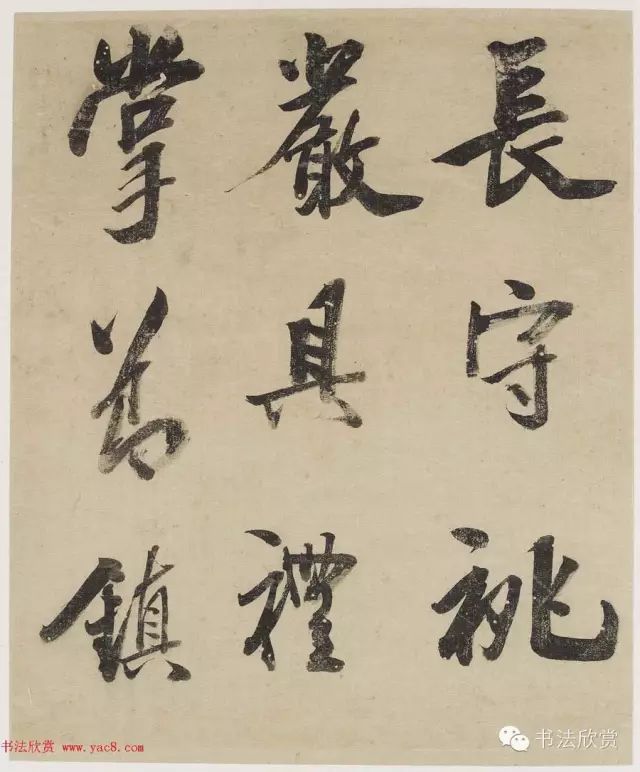 長守祧
嚴具禮
掌爲鎮
书法欣赏 www.yac8.com
书法欣赏